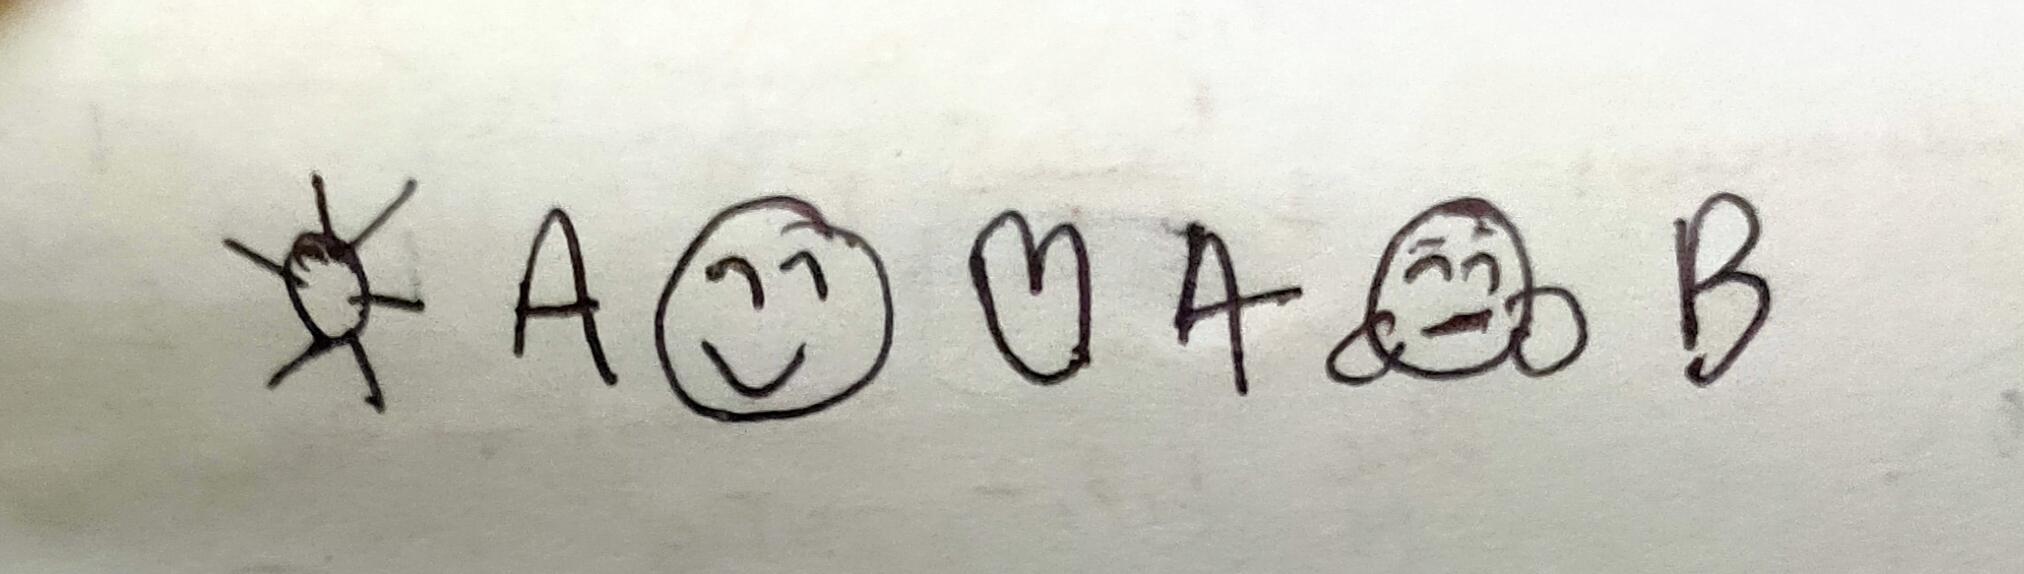 ☀ A 😊 ♡ A 🤗 B